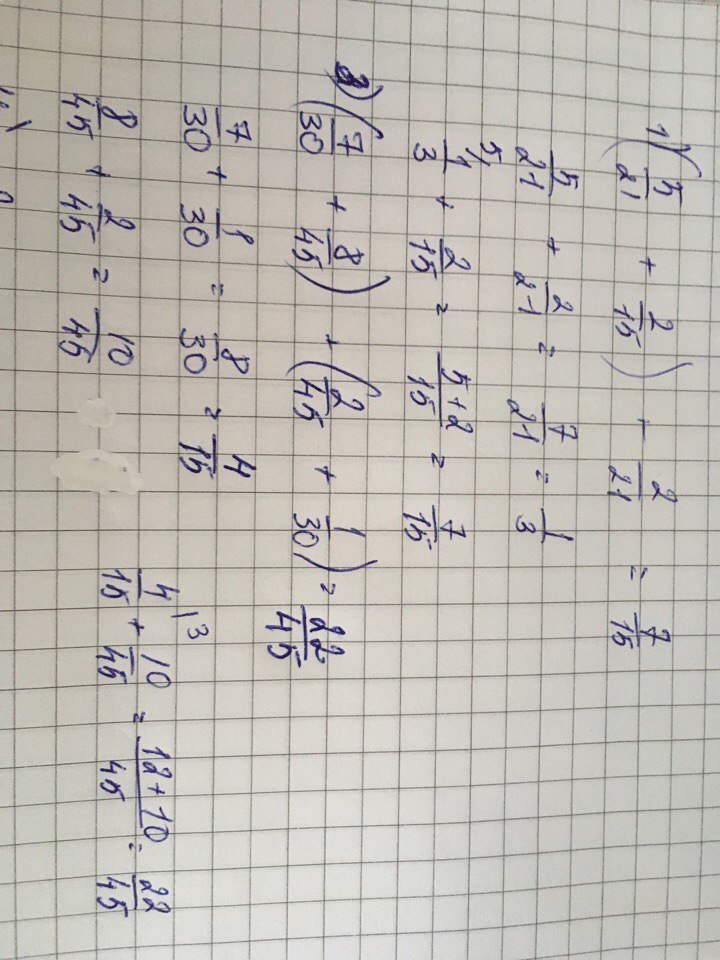 1) (5/21 + 2/15) + 2/21 = 7/15
5/21 + 2/21 = 7/21 = 1/3
5\ 1/3 + 2/15 = 5+2/15 = 7/15
3) (7/30 + 8/45) + (2/45 + 1/30) = 22/45
7/30 + 1/30 = 8/30 = 4/15
8/45 + 2/45 = 10/45
4/15 |3 + 10/45 = 12+10/45 = 22/45